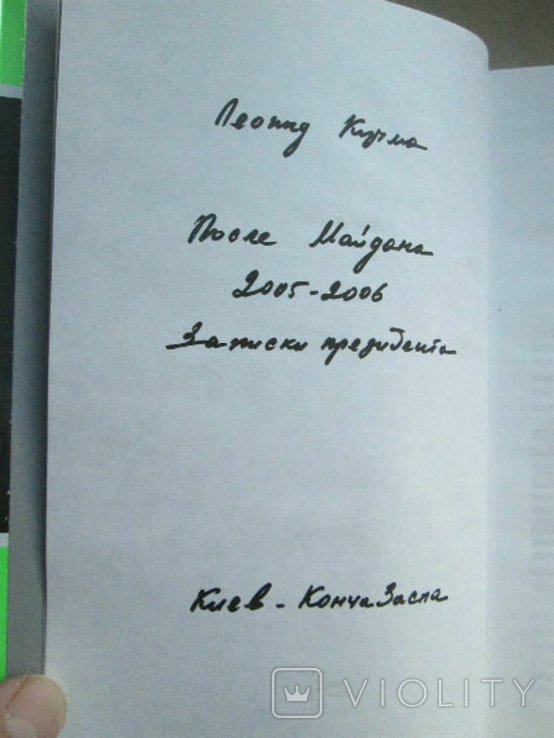 Леонид Кучма
После Майдана
2005-2006
Записки президента
Киев - Конча Заспа
VIOLITY